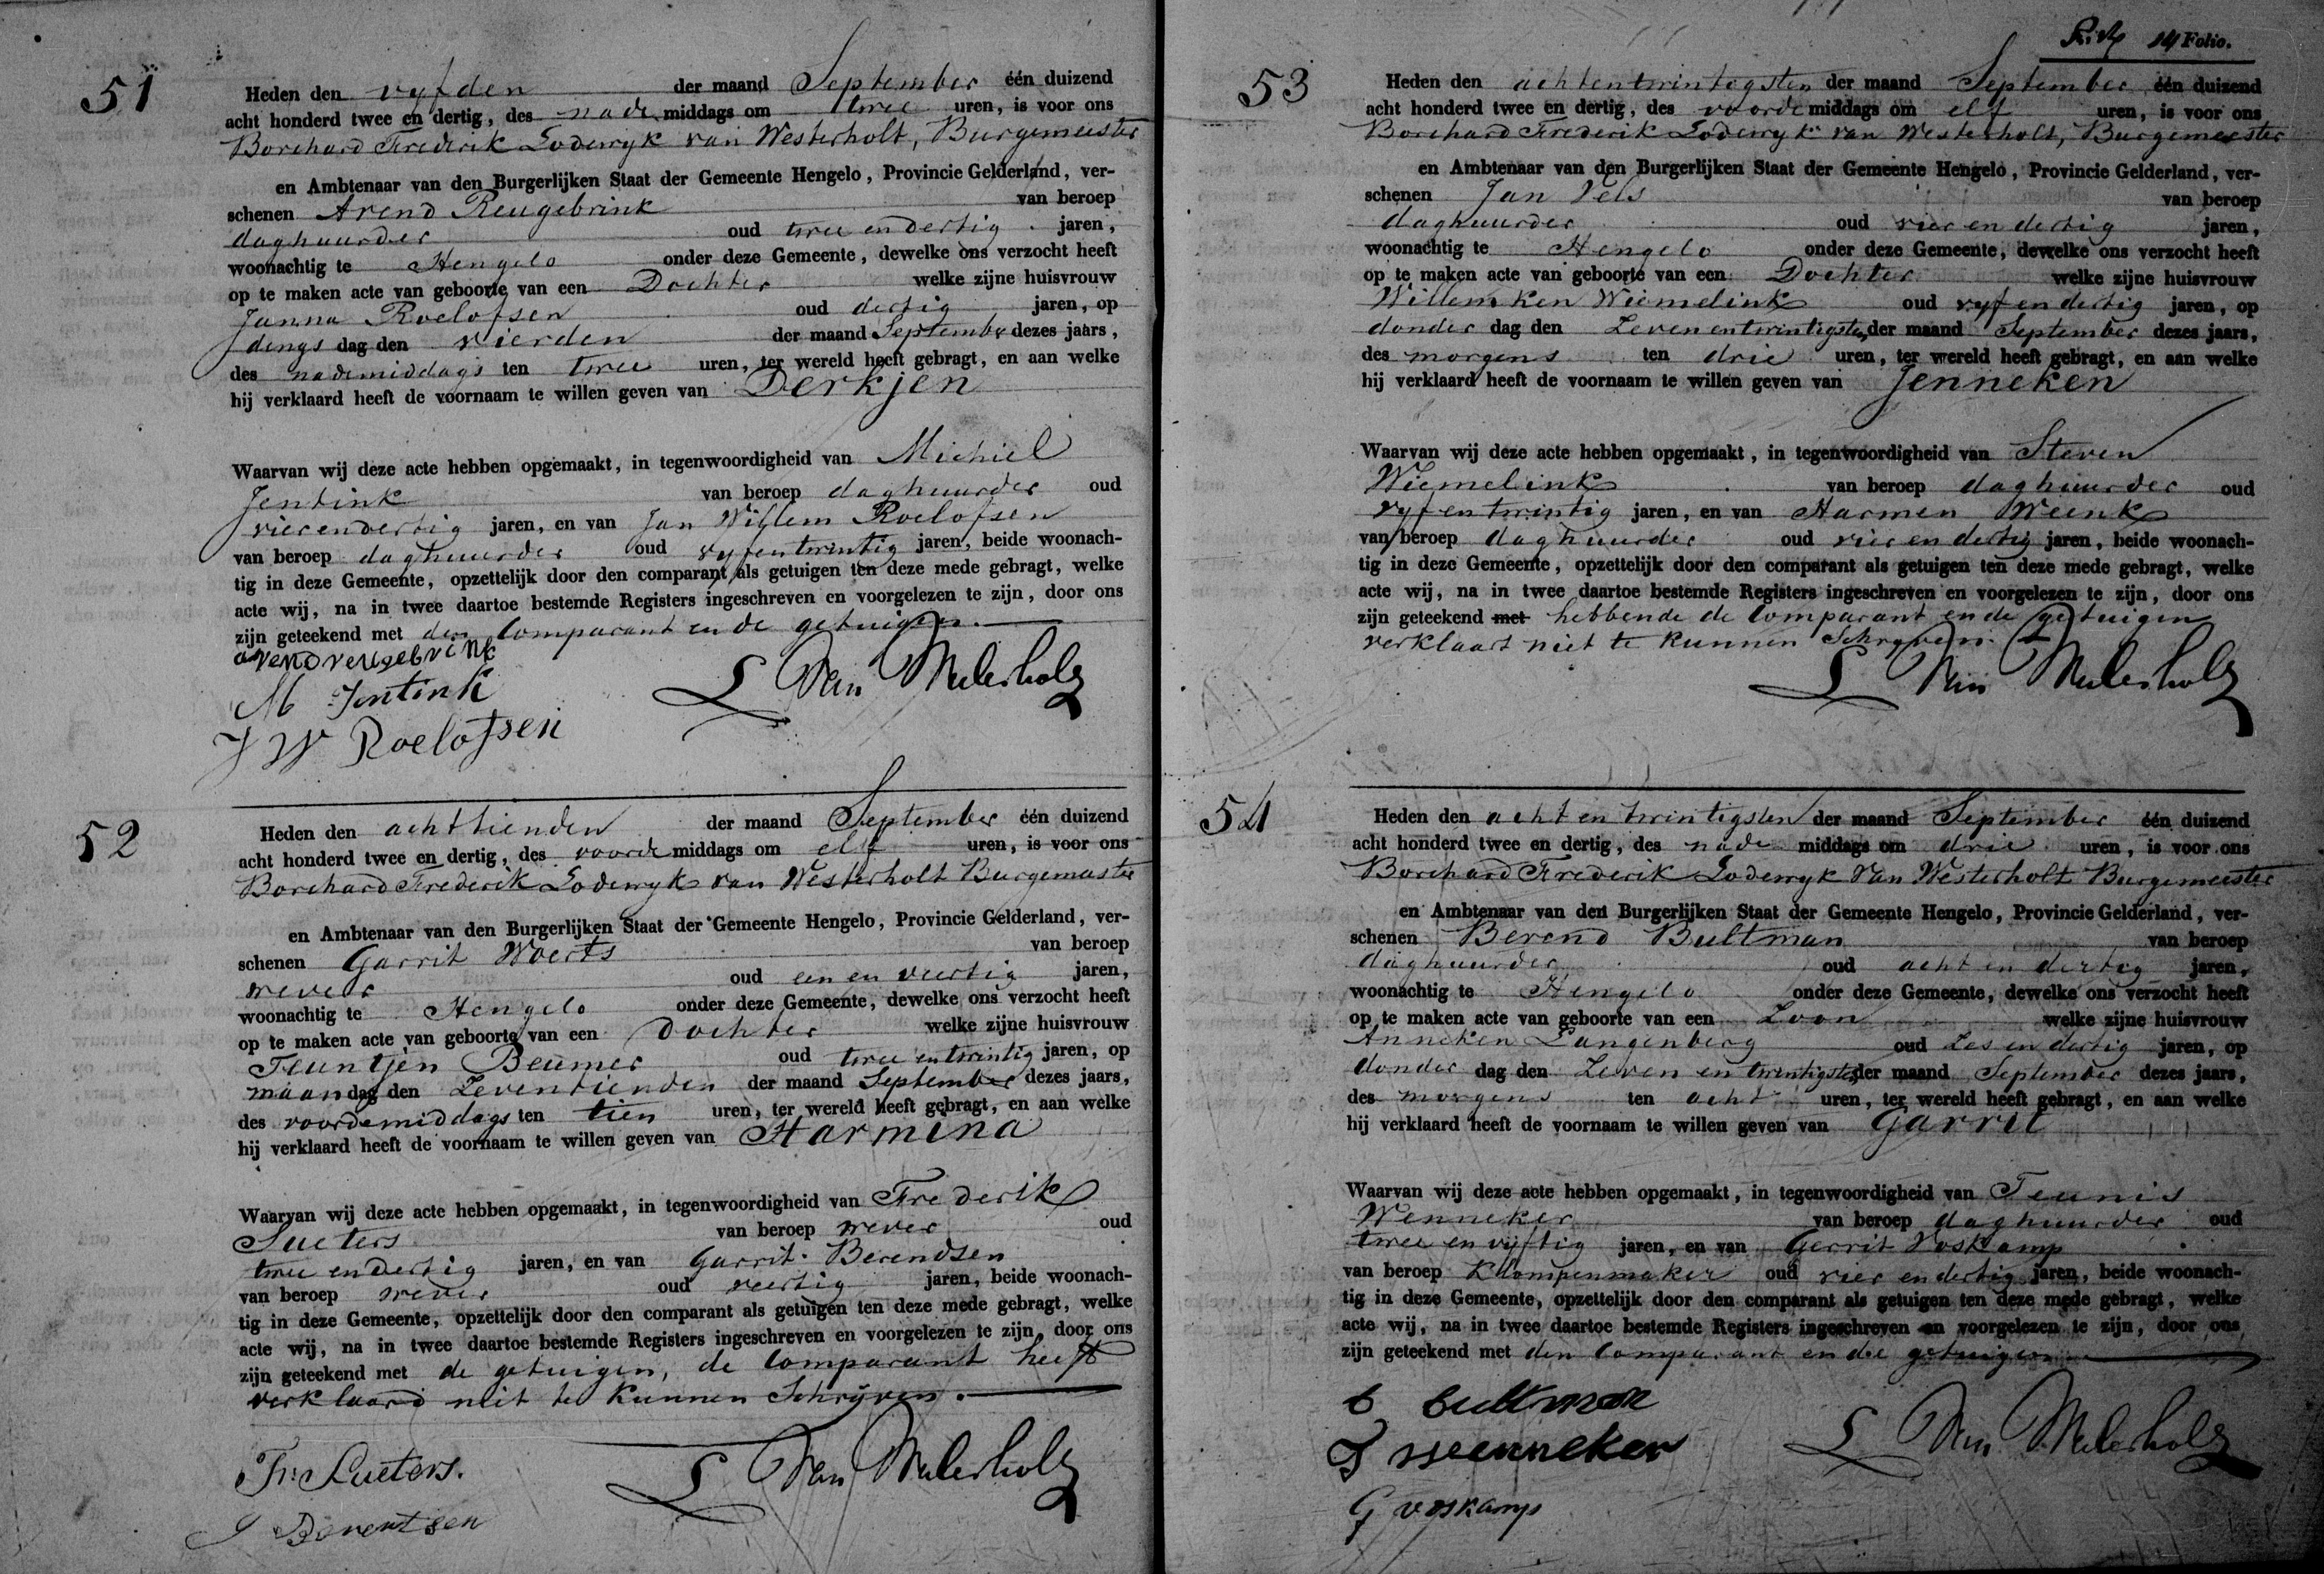 51
Heden den vyfden der maand September één duizend
acht honderd twee en dertig, des nade middags om twee uren, is voor ons
Borchard Frederik Lodewyk van Westerholt, Burgemeester
en Ambtenaar van den Burgerlijken Staat der Gemeente Hengelo, Provincie Gelderland, ver-
schenen Arend Reugebrink van beroep
daghuurder oud twee en dertig jaren,
woonachtig te Hengelo onder deze Gemeente, dewelke ons verzocht heeft
op te maken acte van geboorte van een Dochter welke zijne huisvrouw
Janna Roelofsen oud dertig jaren, op
dings dag den vierden der maand September dezes jaars,
des nademiddags ten twee uren, ter wereld heeft gebragt, en aan welke
hij verklaard heeft de voornaam te willen geven van Derkjen
Waarvan wij deze acte hebben opgemaakt, in tegenwoordigheid van Michiel
Jentink van beroep daghuurder oud
vierendertig jaren, en van Jan Willem Roelofsen
van beroep daghuurder oud vyfentwintig jaren, beide woonach-
tig in deze Gemeente, opzettelijk door den comparant als getuigen ten deze mede gebragt, welke
acte wij, na in twee daartoe bestemde Registers ingeschreven en voorgelezen te zijn, door ons
zijn geteekend met den Comparant en de getuigen.
arend reugebrink
M Jentink
L Van Westerholt
J W Roelofsen
52
Heden den achttienden der maand September één duizend
acht honderd twee en dertig, des voorde middags om elf uren, is voor ons
Borchard Frederik Lodewyk van Westerholt Burgemeester
en Ambtenaar van den Burgerlijken Staat der Gemeente Hengelo, Provincie Gelderland, ver-
schenen Garrit Woerts van beroep
wever oud een en veertig jaren,
woonachtig te Hengelo onder deze Gemeente, dewelke ons verzocht heeft
op te maken acte van geboorte van een Dochter welke zijne huisvrouw
Teuntjen Beumer oud twee en twintig jaren, op
maan dag den Zeventienden der maand September dezes jaars,
des voordemiddags ten tien uren, ter wereld heeft gebragt, en aan welke
hij verklaard heeft de voornaam te willen geven van Harmina
Waarvan wij deze acte hebben opgemaakt, in tegenwoordigheid van Frederik
Lueters van beroep wever oud
twee en dertig jaren, en van Garrit Berendsen
van beroep wever oud veertig jaren, beide woonach-
tig in deze Gemeente, opzettelijk door den comparant als getuigen ten deze mede gebragt, welke
acte wij, na in twee daartoe bestemde Registers ingeschreven en voorgelezen te zijn, door ons
zijn geteekend met de getuigen, de Comparant heeft
verklaard niet te kunnen Schrijven.
Fr: Lueters.
L Van Westerholt
Berentsen
14 Folio.
53
Heden den achtentwintigsten der maand September één duizend
acht honderd twee en dertig, des voorde middags om elf uren, is voor ons
Borchard Frederik Lodewyk van Westerholt, Burgemeester
en Ambtenaar van den Burgerlijken Staat der Gemeente Hengelo, Provincie Gelderland, ver-
schenen Jan Vels van beroep
daghuurder oud vier en dertig jaren,
woonachtig te Hengelo onder deze Gemeente, dewelke ons verzocht heeft
op te maken acte van geboorte van een Dochter welke zijne huisvrouw
Willemken Wiemelink oud vyf en dertig jaren, op
donder dag den Zevenentwintigsten der maand September dezes jaars,
des morgens ten drie uren, ter wereld heeft gebragt, en aan welke
hij verklaard heeft de voornaam te willen geven van Jenneken
Waarvan wij deze acte hebben opgemaakt, in tegenwoordigheid van Steven
Wiemelink van beroep daghuurder oud
vyf en twintig jaren, en van Harmen Weenk
van beroep daghuurder oud vier en dertig jaren, beide woonach-
tig in deze Gemeente, opzettelijk door den comparant als getuigen ten deze mede gebragt, welke
acte wij, na in twee daartoe bestemde Registers ingeschreven en voorgelezen te zijn, door ons
zijn geteekend met hebbende de Comparant en de getuigen
verklaart niet te kunnen Schryven.
L Van Westerholt
54
Heden den acht en twintigsten der maand September één duizend
acht honderd twee en dertig, des nade middags om drie uren, is voor ons
Borchard Frederik Lodewyk Van Westerholt Burgemeester
en Ambtenaar van den Burgerlijken Staat der Gemeente Hengelo, Provincie Gelderland, ver-
schenen Berend Bultman van beroep
daghuurder oud acht en dertig jaren,
woonachtig te Hengelo onder deze Gemeente, dewelke ons verzocht heeft
op te maken acte van geboorte van een Zoon welke zijne huisvrouw
Anneken Langenberg oud Zes en dertig jaren, op
donder dag den Zeven en twintigsten der maand September dezes jaars,
des morgens ten acht uren, ter wereld heeft gebragt, en aan welke
hij verklaard heeft de voornaam te willen geven van Garrit
Waarvan wij deze acte hebben opgemaakt, in tegenwoordigheid van Teunis
Wenneker van beroep daghuurder oud
twee en vyftig jaren, en van Gerrit Voskamp
van beroep Klompenmaker oud vier en dertig jaren, beide woonach-
tig in deze Gemeente, opzettelijk door den comparant als getuigen ten deze mede gebragt, welke
acte wij, na in twee daartoe bestemde Registers ingeschreven en voorgelezen te zijn, door ons
zijn geteekend met den Comparant en de getuigen
b bultman
T Weenneker
L Van Westerholt
G voskamp